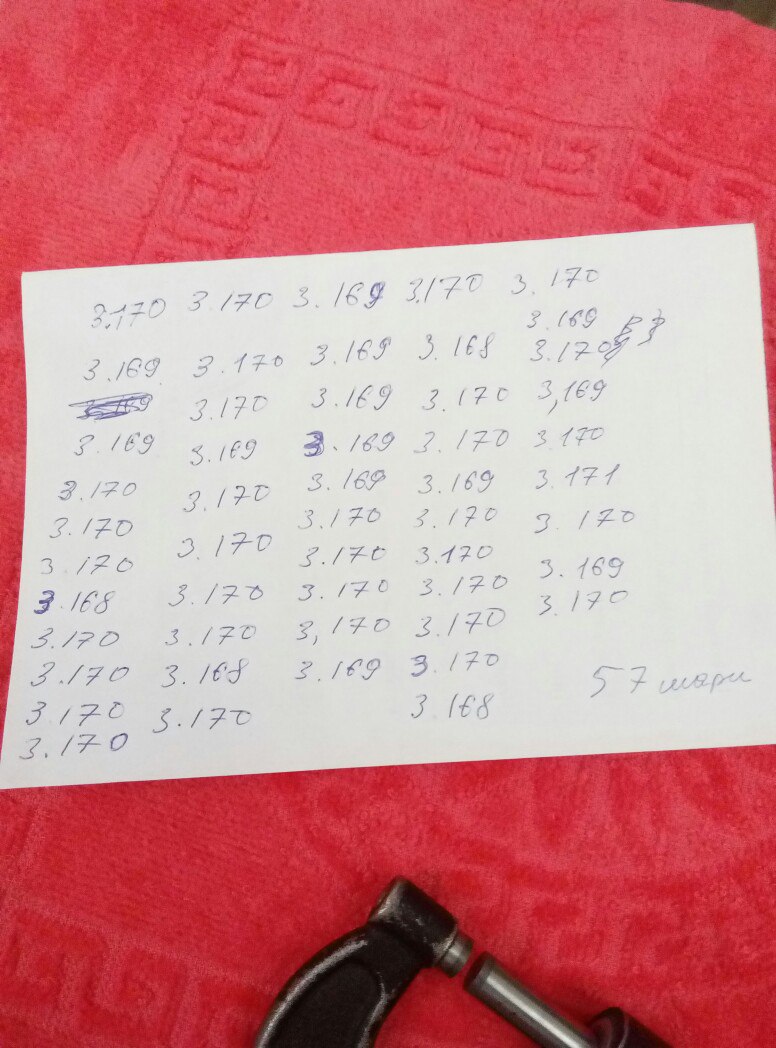 3.170 3.170 3.169 3.170 3.170
3.169
3.169 3.170 3.169 3.168 3.170
3.170 3.169 3.170 3,169
3.169 3.169 3.169 3.170 3.170
3.170 3.170 3.169 3.169 3.171
3.170 3.170 3.170 3.170 3.170
3.170 3.170 3.170 3.169
3.168 3.170 3.170 3.170 3.170
3.170 3.170 3,170 3.170
3.170 3.168 3.169 3.170
3.170 3.170 3.168
3.170
57 шари